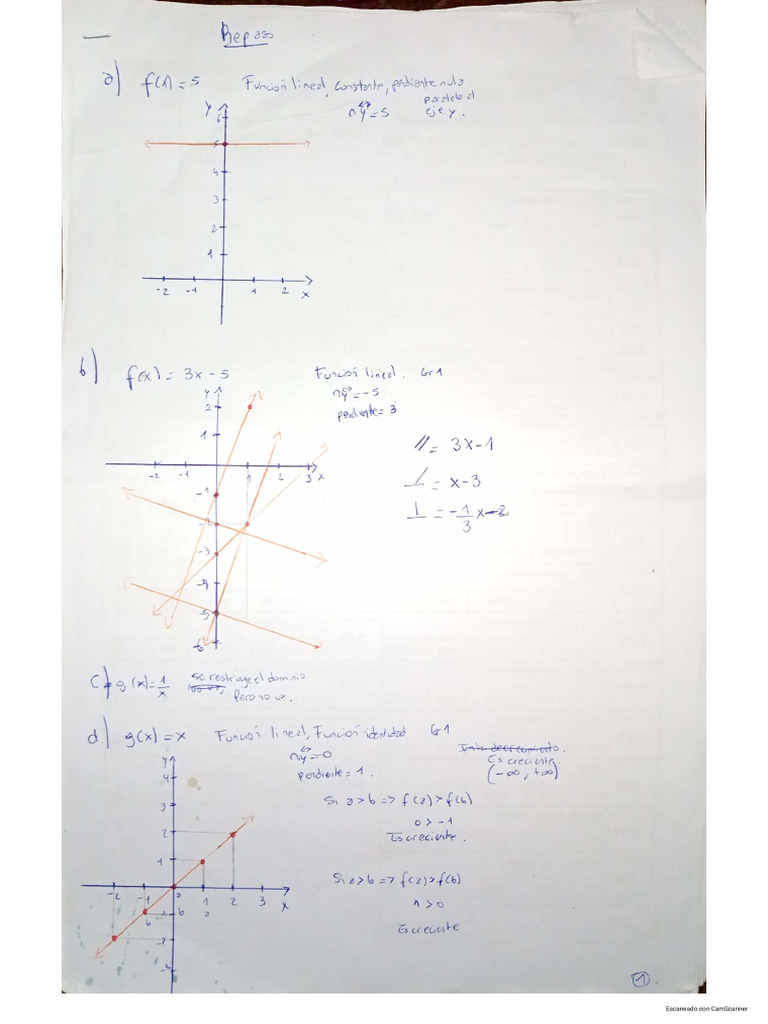 Repaso
a) f(x) = 5 Función lineal, constante, pendiente nula
∩y = 5 paralela al
eje y.
Y
6
5
4
3
2
1
-2 -1 1 2 X
b) f(x) = 3x - 5 Función lineal. Gr1
∩y = -5
pendiente = 3
Y
2
1
-2 -1 1 2 3 X
-1
-2
-3
-4
-5
-6
// = 3x-1
⊥ = x-3
⊥ = -1/3 x-2
c) g(x) = 1/x se restringe el dominio
Pero no vx.
d) g(x) = x Función lineal, Función identidad Gr1
∩y = 0
pendiente = 1.
Es creciente.
(-∞, +∞)
Si a>b => f(a)>f(b)
0 > -1
Es creciente.
Si a>b => f(a)>f(b)
1 > 0
Es creciente
Y
4
3
2
1
-2 -1 0 1 2 3 X
b a
b
-1
-2
-3
1.
Escaneado con CamScanner